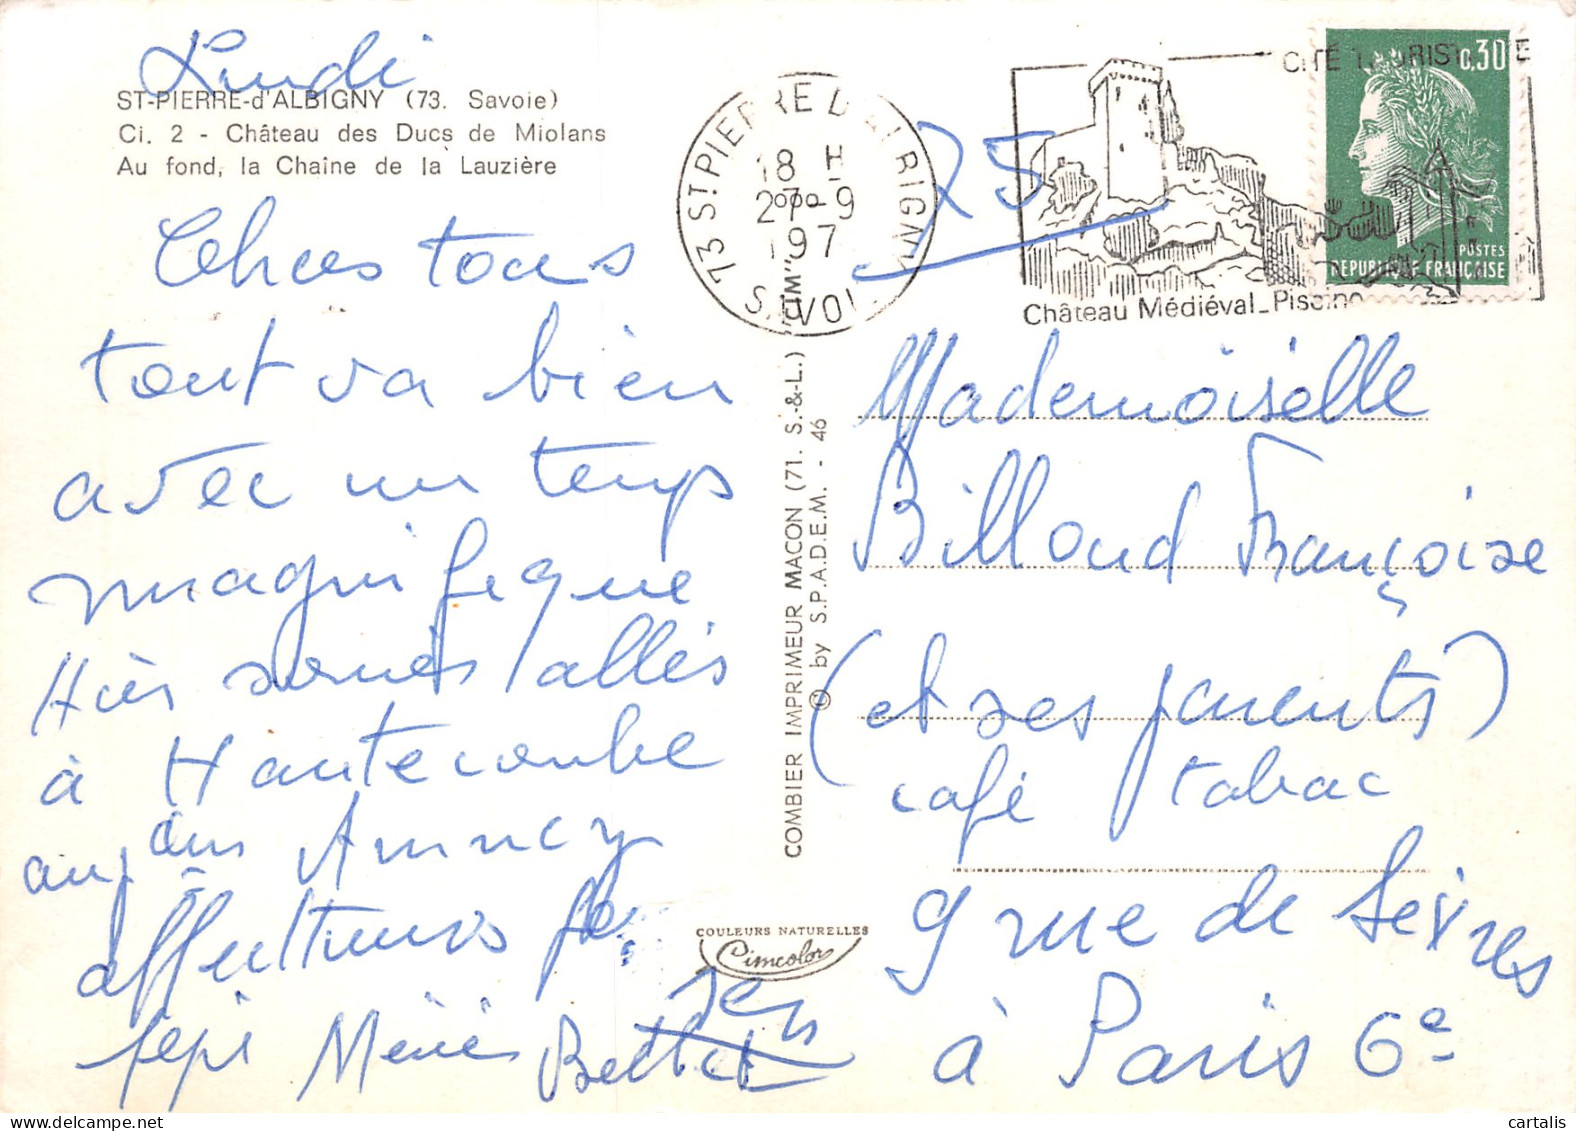 Lundi
ST-PIERRE-d'ALBIGNY (73. Savoie)
Ci. 2 - Château des Ducs de Miolans
Au fond, la Chaîne de la Lauzière
Chers tous
tout va bien
avec un temps
magnifique
Hier sommes allés
à Hautecombe
Annecy
Mémé
COULEURS NATURELLES
Cimcolor
COMBIER IMPRIMEUR MACON (71. S.-&-L.) "CIM"
© by S.P.A.D.E.M. - 46
73 ST PIERRE D'ALBIGNY
18 H
27-9
197
SAVOIE
75
CITÉ TOURISTIQUE
Château Médiéval_Piscine
0,30
POSTES
REPUBLIQUE FRANÇAISE
Mademoiselle
Billoud Françoise
(et ses parents)
café tabac
9 rue de Sèvres
à Paris 6e